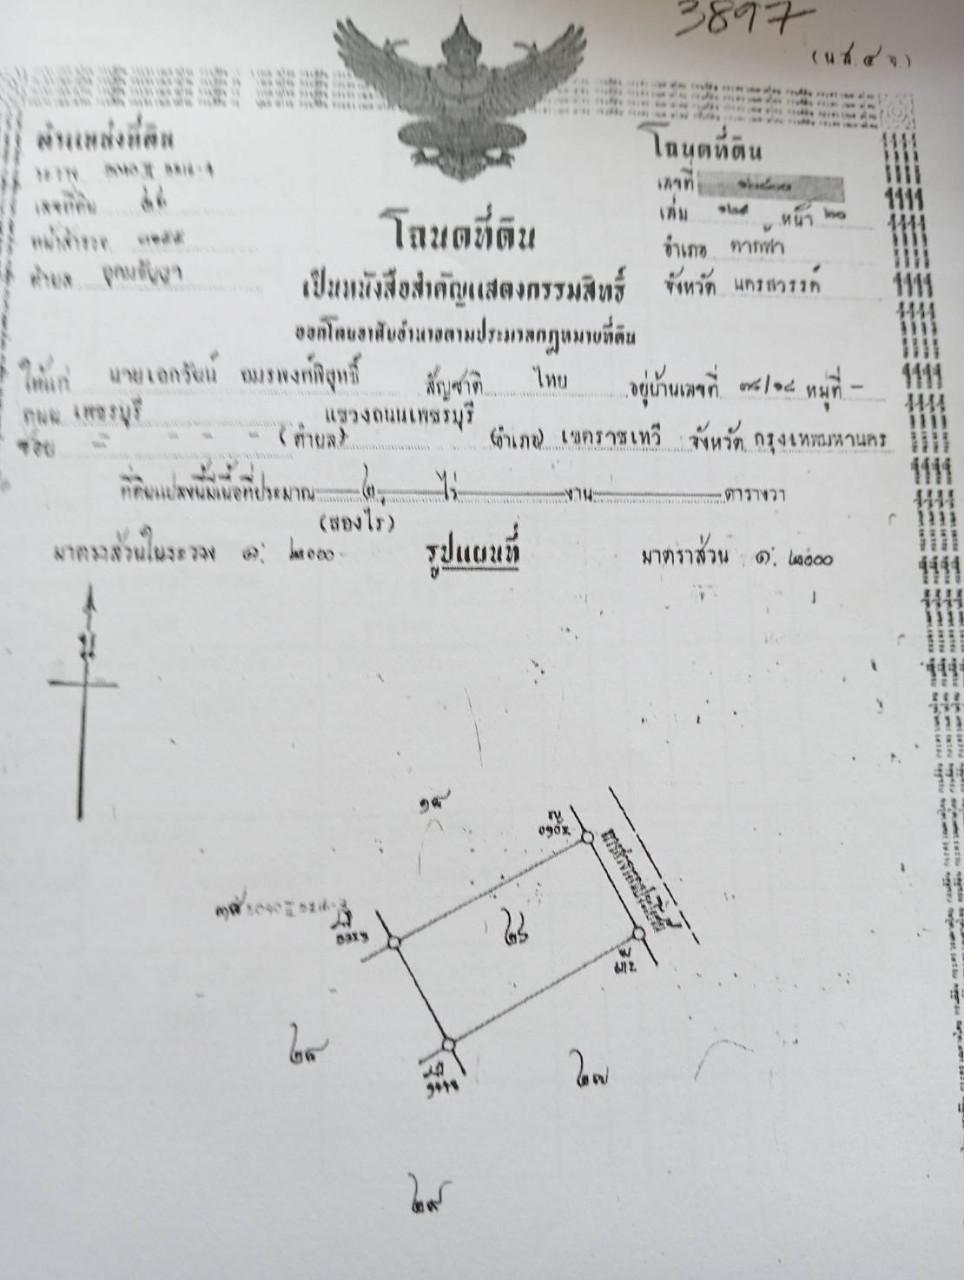 3897
(น.ส.๔ จ.)
ตำแหน่งที่ดิน
ระวาง
เลขที่ดิน ๒๖
หน้าสำรวจ
ตำบล อุดมธัญญา
โฉนดที่ดิน
เลขที่
เล่ม ๑๒๕ หน้า ๒๐
อำเภอ ตากฟ้า
จังหวัด นครสวรรค์
โฉนดที่ดิน
เป็นหนังสือสำคัญแสดงกรรมสิทธิ์
ออกโดยอาศัยอำนาจตามประมวลกฎหมายที่ดิน
ให้แก่ นายเอกรัยน์ อมรพงศ์พิสุทธิ์ สัญชาติ ไทย อยู่บ้านเลขที่ ๓๘/๑๘ หมู่ที่ -
ถนน เพชรบุรี แขวงถนนเพชรบุรี
ซอย - - - - (ตำบล) (อำเภอ) เขตราชเทวี จังหวัด กรุงเทพมหานคร
ที่ดินแปลงนี้มีเนื้อที่ประมาณ ๒ ไร่ งาน ตารางวา
(สองไร่)
มาตราส่วนในระวาง ๑: ๒๐๐๐ รูปแผนที่ มาตราส่วน ๑: ๒๐๐๐
น
๑๘
๒๖
๒๘
๒๗
๒๙